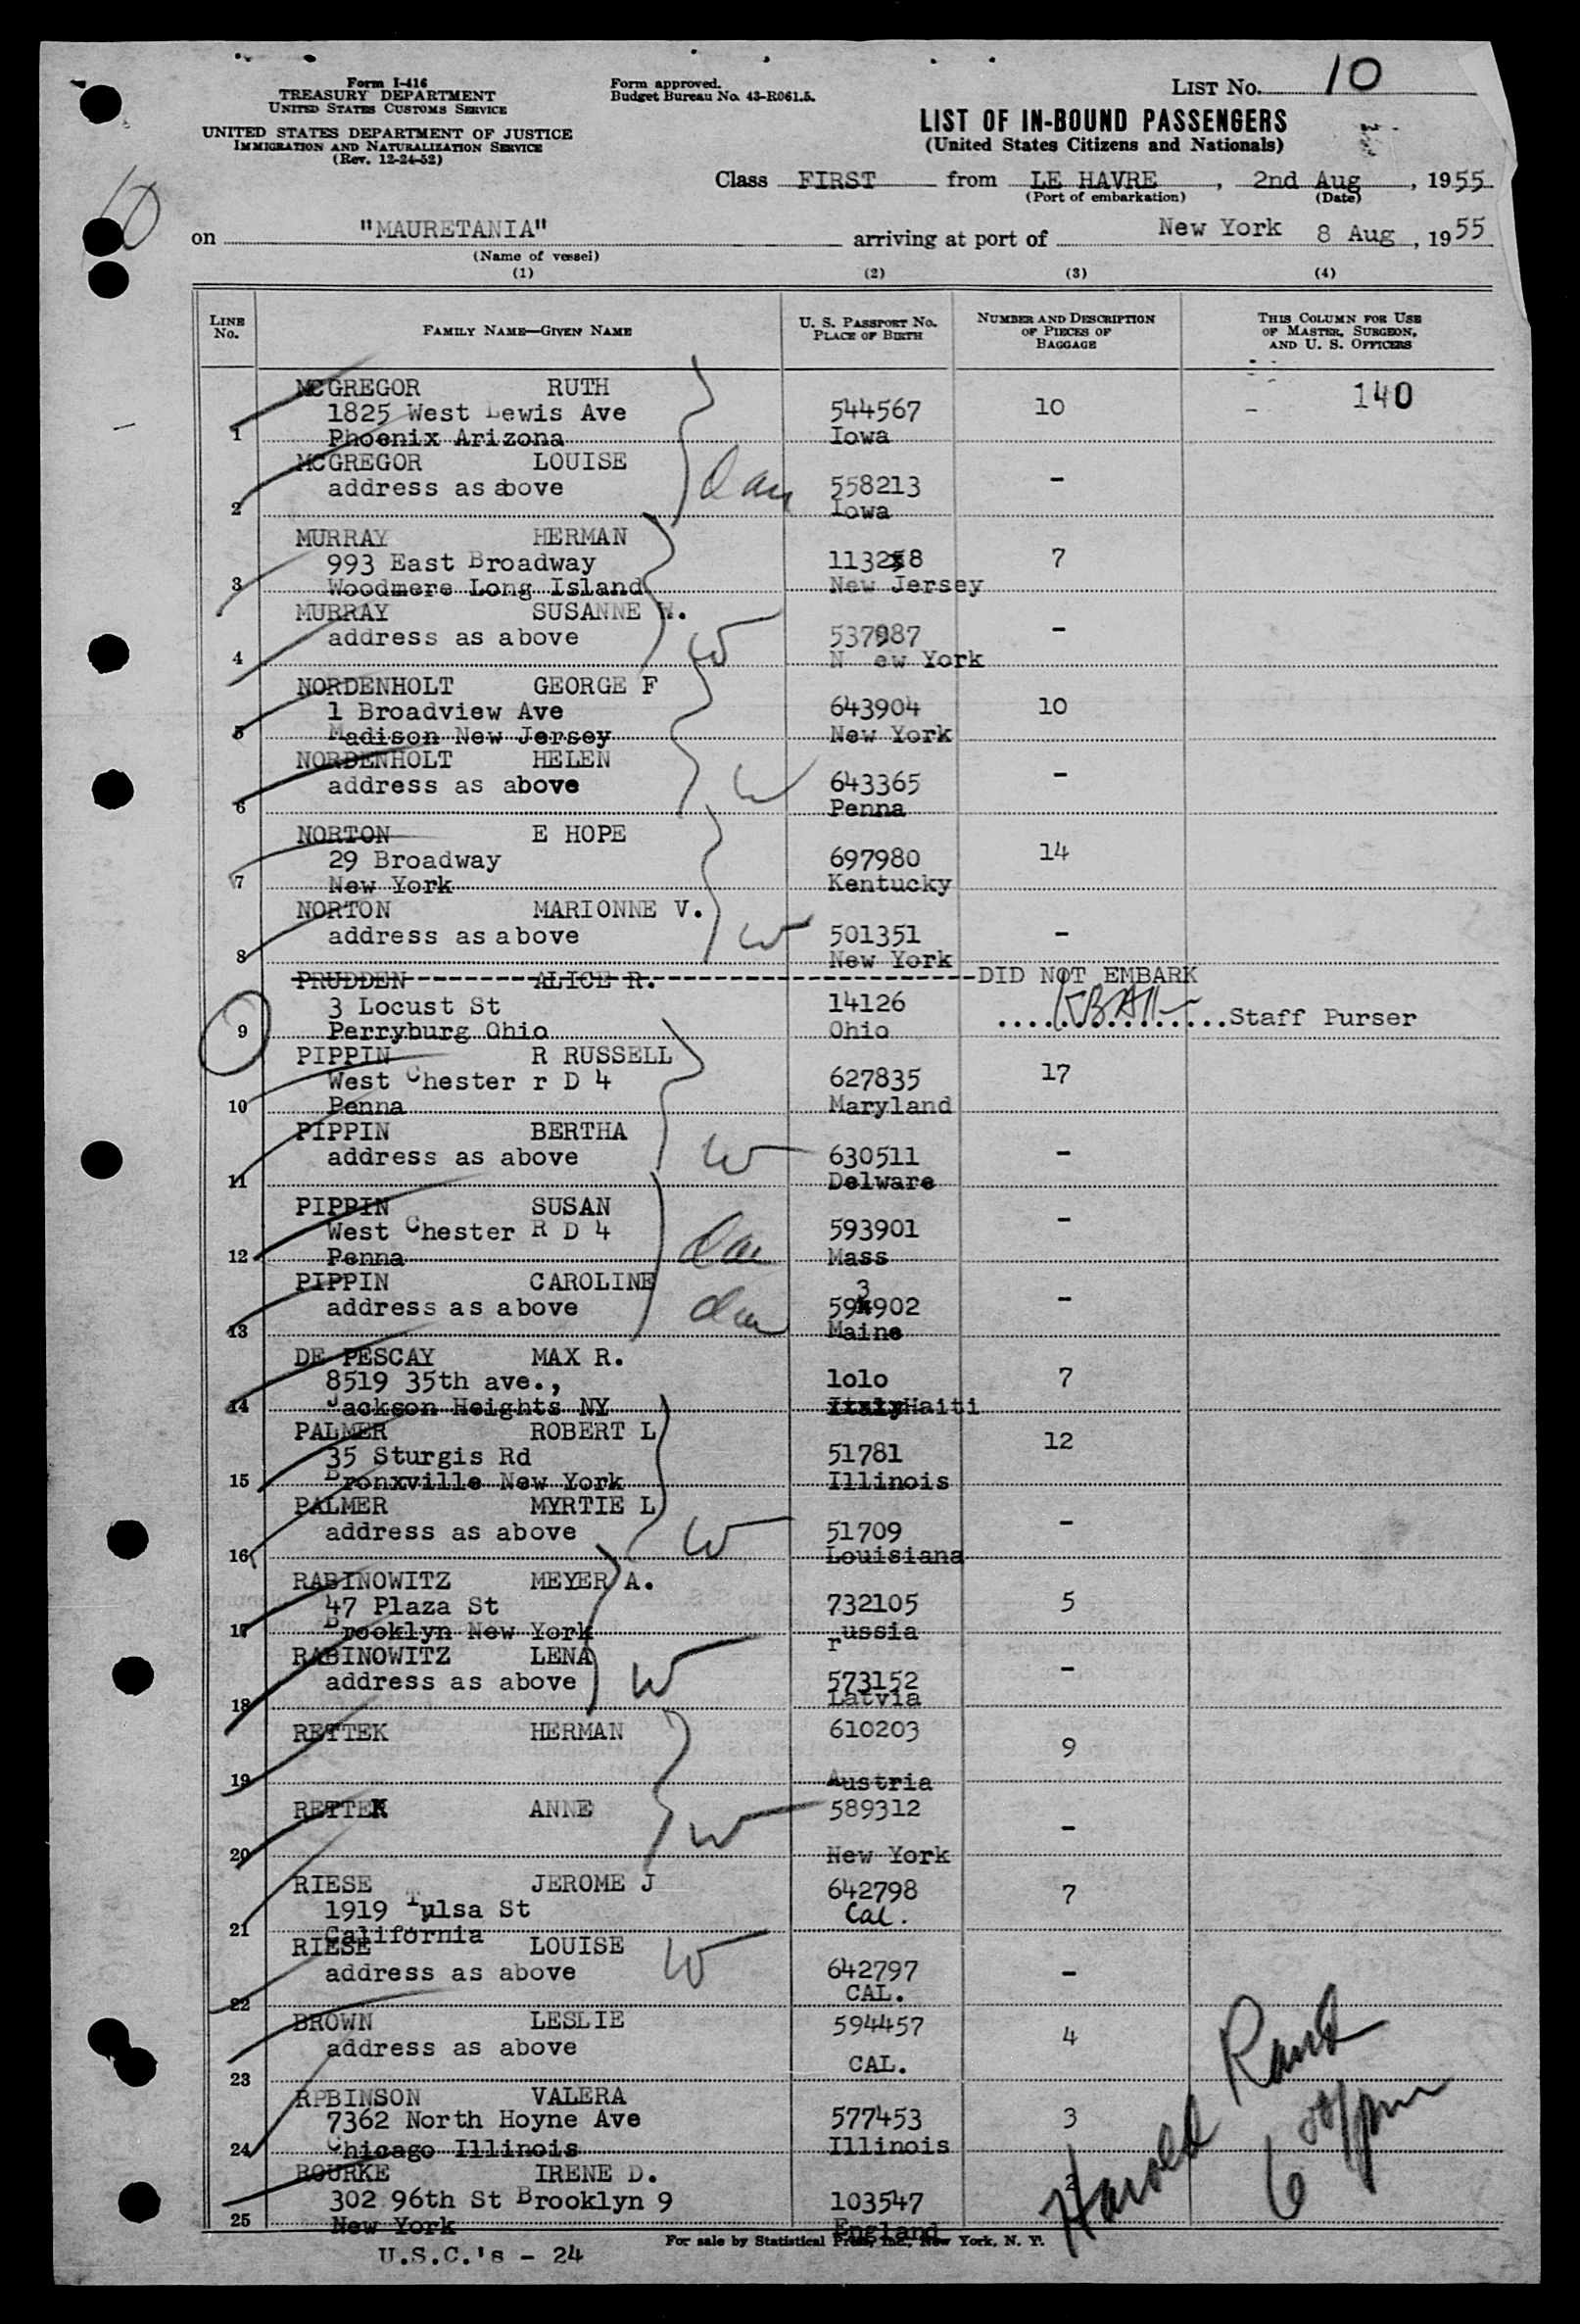 Form I-416
TREASURY DEPARTMENT
UNITED STATES CUSTOMS SERVICE
UNITED STATES DEPARTMENT OF JUSTICE
IMMIGRATION AND NATURALIZATION SERVICE
(Rev. 12-24-52)
Form approved.
Budget Bureau No. 43-R061.5.
LIST No. 10
LIST OF IN-BOUND PASSENGERS
(United States Citizens and Nationals)
Class FIRST from LE HAVRE, 2nd Aug, 1955
(Port of embarkation) (Date)
10
on "MAURETANIA" arriving at port of New York 8 Aug, 1955
(Name of vessel)
(1) (2) (3) (4)
LINE No. FAMILY NAME—GIVEN NAME U. S. PASSPORT NO. PLACE OF BIRTH NUMBER AND DESCRIPTION OF PIECES OF BAGGAGE THIS COLUMN FOR USE OF MASTER, SURGEON, AND U. S. OFFICERS
MCGREGOR RUTH 140
1825 West Lewis Ave 544567 10 -
1 Phoenix Arizona Iowa
MCGREGOR LOUISE
address as above 558213 -
2 Iowa
MURRAY HERMAN
993 East Broadway 7
3 Woodmere Long Island New Jersey
MURRAY SUSANNE W.
address as above 537987 -
4 W N ew York
NORDENHOLT GEORGE F
1 Broadview Ave 643904 10
5 Madison New Jersey New York
NORDENHOLT HELEN
address as above W 643365 -
6 Penna
NORTON E HOPE
29 Broadway 697980 14
7 New York Kentucky
NORTON MARIONNE V.
address as above W 501351 -
8 New York
PRUDDEN ALICE R. DID NOT EMBARK
3 Locust St 14126
9 Perryburg Ohio Ohio Staff Purser
PIPPIN R RUSSELL
West Chester r D 4 627835 17
10 Penna Maryland
PIPPIN BERTHA
address as above W 630511 -
11 Delware
PIPPIN SUSAN
West Chester R D 4 593901 -
12 Penna Mass
PIPPIN CAROLINE 3
address as above 594902 -
13 Maine
DE PESCAY MAX R.
8519 35th ave., lolo 7
14 Jackson Heights NY Italy Haiti
PALMER ROBERT L
35 Sturgis Rd 51781 12
15 Bronxville New York Illinois
PALMER MYRTIE L
address as above W 51709 -
16 Louisiana
RABINOWITZ MEYER A.
47 Plaza St 732105 5
17 Brooklyn New York russia
RABINOWITZ LENA
address as above W 573152 -
18 Latvia
RETTEK HERMAN 610203
9
19 Austria
RETTEK ANNE 589312
W -
20 New York
RIESE JEROME J 642798 7
1919 Tulsa St Cal.
21 California
RIESE LOUISE
address as above W 642797 -
22 CAL.
BROWN LESLIE 594457
address as above 4
23 CAL.
RPBINSON VALERA
7362 North Hoyne Ave 577453 3
24 Chicago Illinois Illinois
ROURKE IRENE D.
302 96th St Brooklyn 9 103547 2
25 New York England
Harold Rand
6 pm
For sale by Statistical Press, Inc., New York, N. Y.
U.S.C.'s - 24